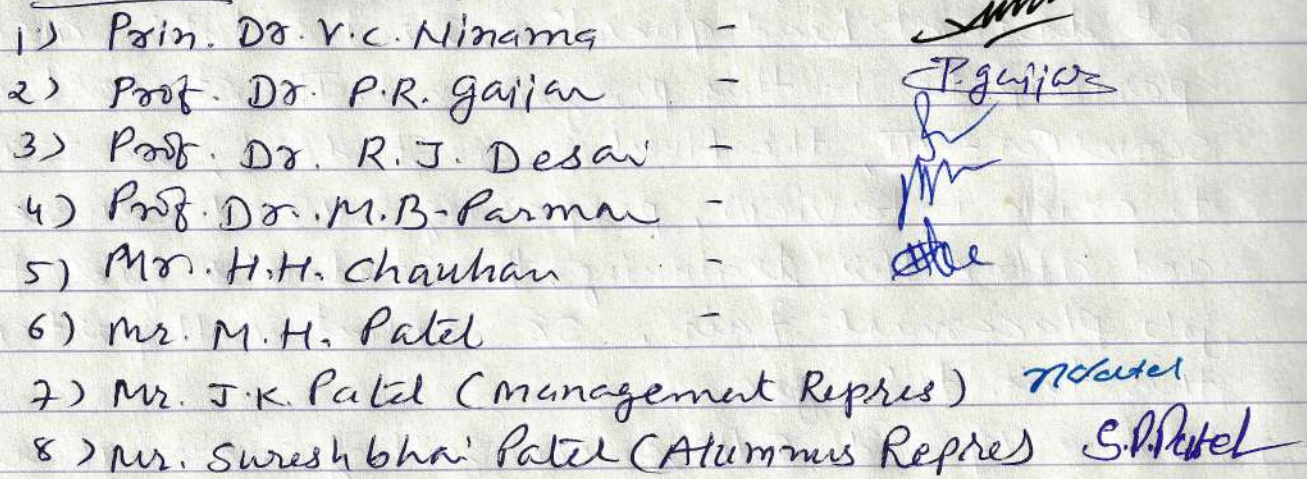 1) Prin. Dr. V.C. Ninama -
2) Prof. Dr. P.R. Gajjar - P.gajjar
3) Prof. Dr. R.J. Desai -
4) Prof. Dr. M.B-Parmar -
5) Mr. H.H. Chauhan -
6) Mr. M.H. Patel -
7) Mr. J.K. Patel (Management Repres)
8) Mr. Sureshbhai Patel (Alumnus Repres) S.P.Patel